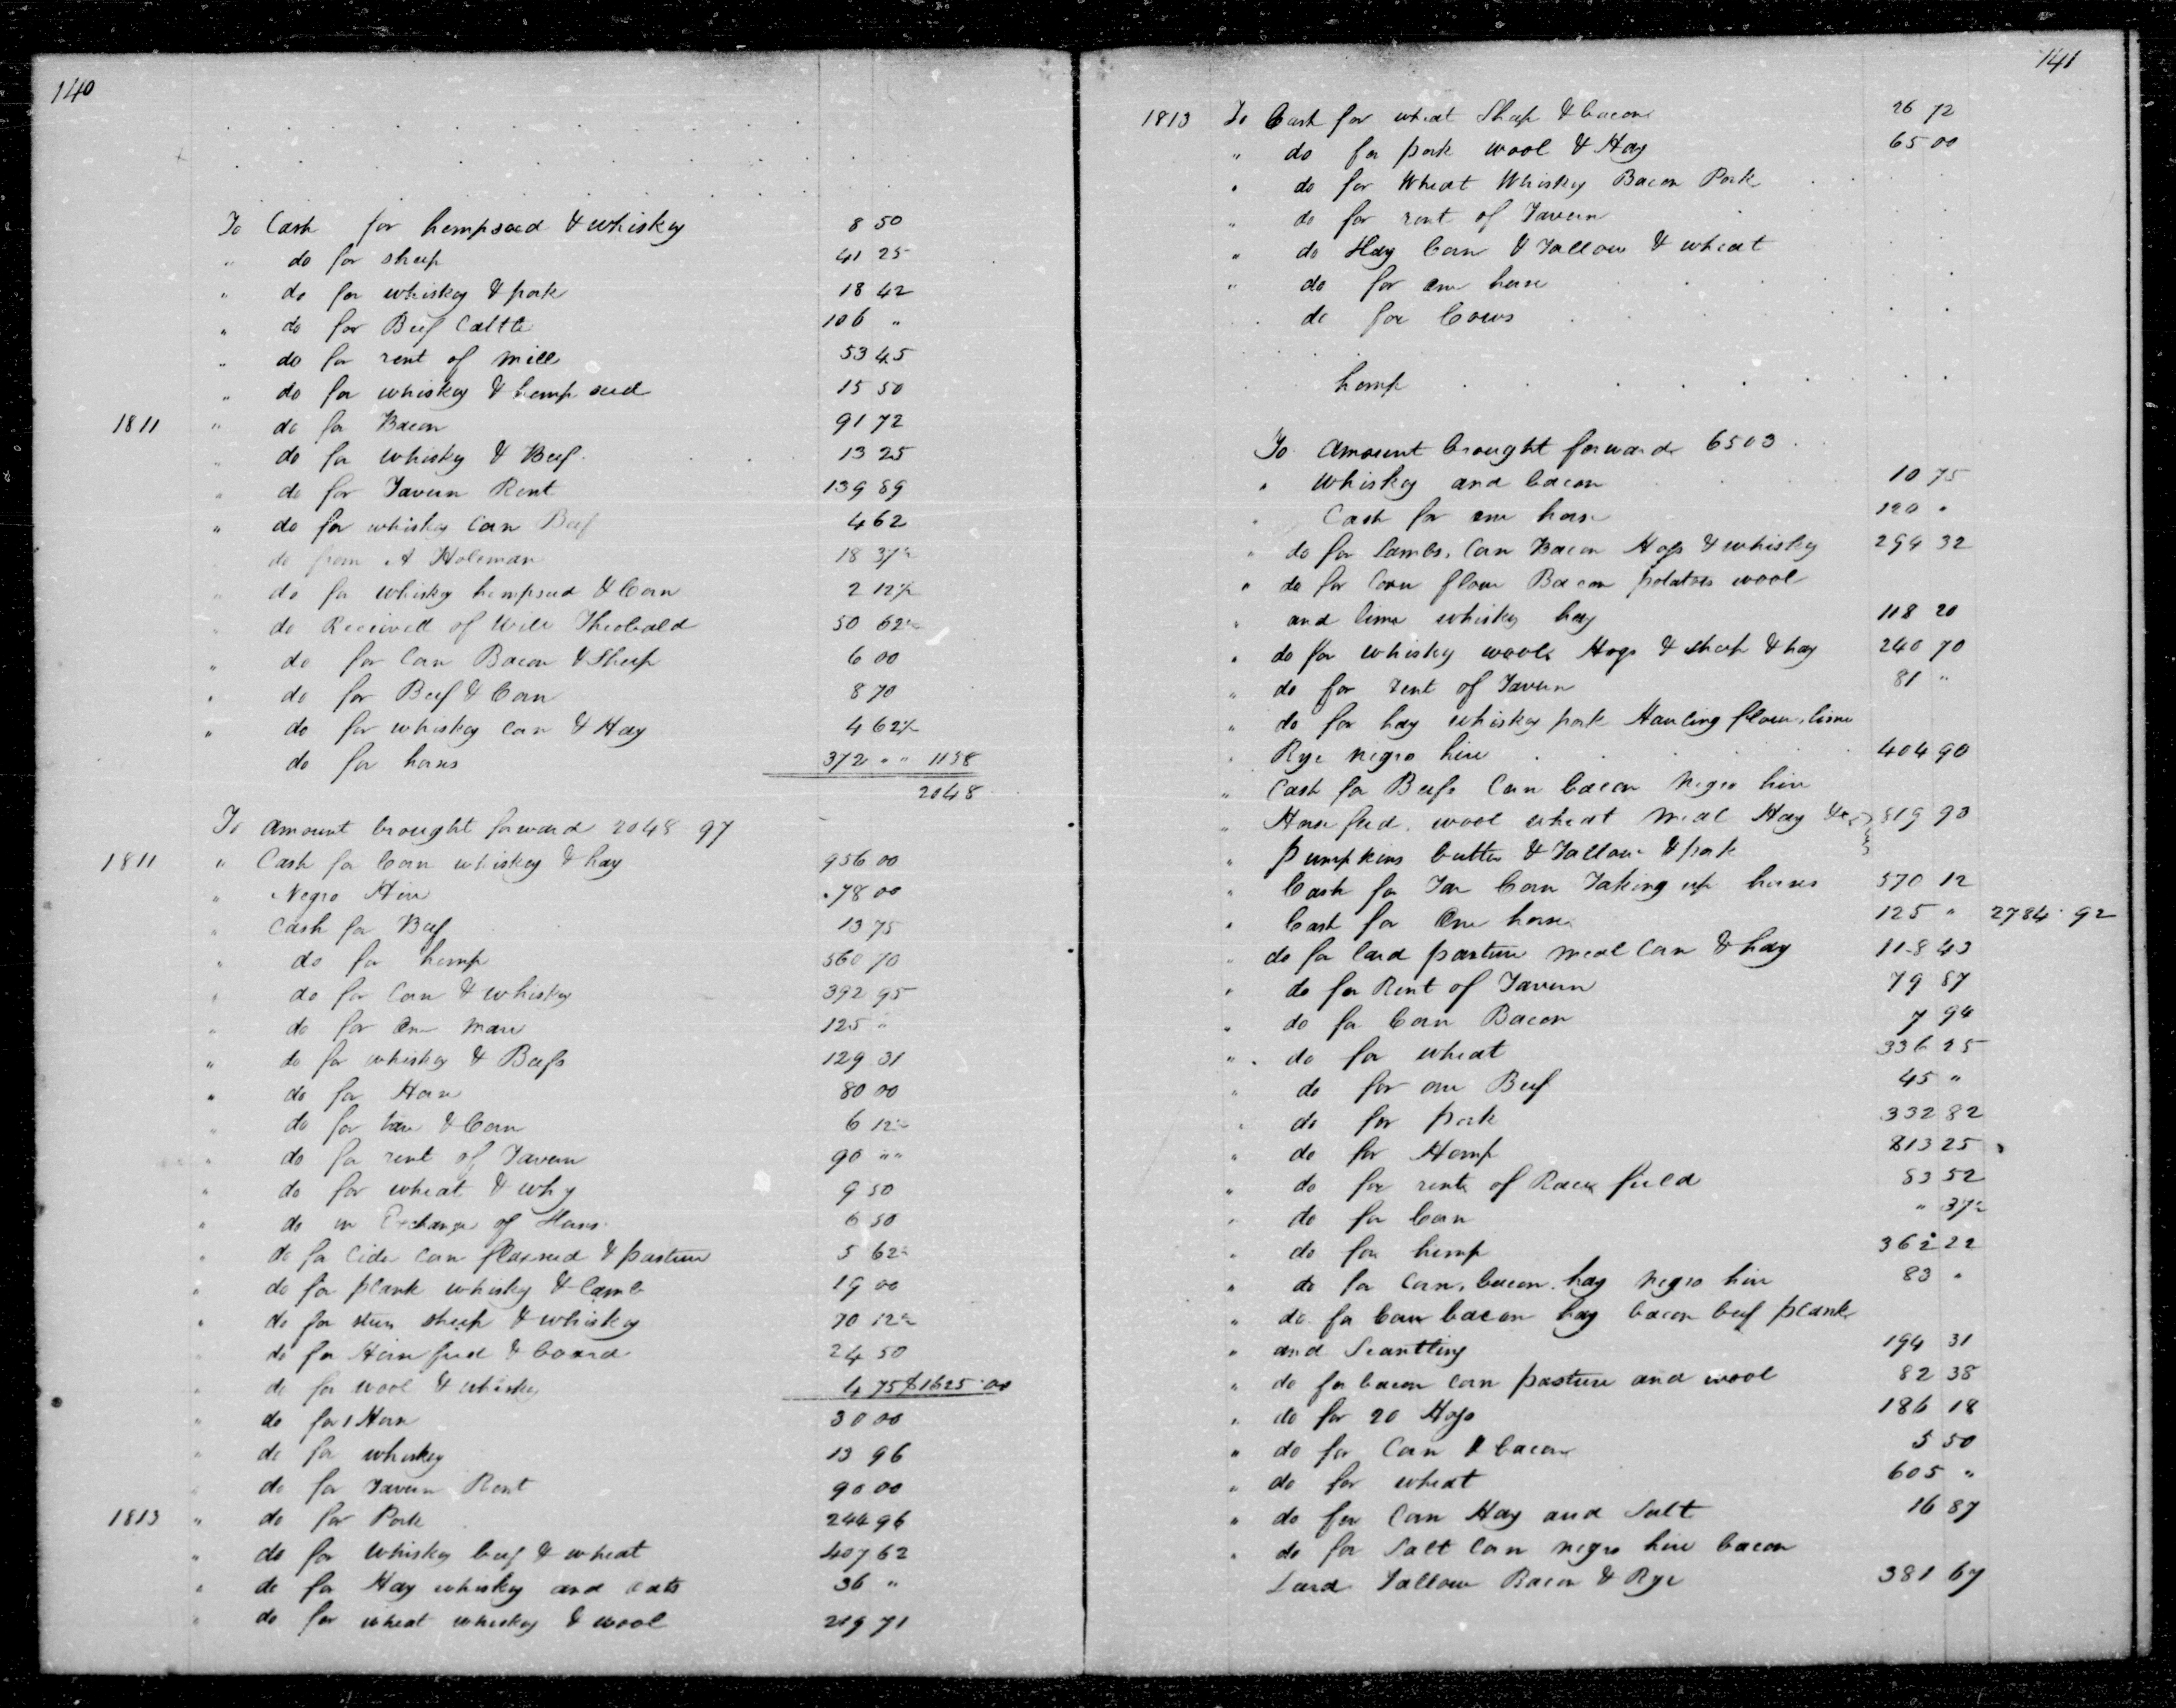 140
To Cash for hempseed & whiskey 8 50
" do for sheep 41 25
" do for whiskey & pork 18 42
" do for Beef Cattle 106 "
" do for rent of mill 53 45
" do for whiskey & hemp seed 15 50
1811 " do for Bacon 91 72
" do for whisky & Beef 13 25
" do for Tavern Rent 139 89
" do for whisky Corn Beef 4 62
" do from A Holeman 18 37½
" do for whisky hempseed & Corn 2 12½
" do Received of Will Theobald 50 62½
" do for Corn Bacon & Sheep 6 00
" do for Beef & Corn 8 70
" do for whiskey corn & Hay 4 62½
do for horses 372 " " 1158
2048
To amount brought forward 2048 97
1811 " Cash for Corn whiskey & hay 956 00
" Negro Hire 78 00
" Cash for Beef 13 75
" do for hemp 560 70
" do for Corn & whisky 392 95
" do for One Mare 125 "
" do for whisky & Beefs 129 31
" do for Horse 80 00
" do for & Corn 6 12½
" do for rent of Tavern 90 " "
" do for wheat & why 9 50
" do in Exchange of Horses 6 50
" do for Cider corn flaxseed & pasture 5 62½
" do for plank whisky & lamb 19 00
" do for steers sheep & whiskey 70 12½
" do for Horse feed & board 24 50
" do for wool & whisky 4 75 $1625.00
" do for 1 Horse 30 00
" do for whiskey 13 96
" do for Tavern Rent 90 00
1813 " do for Pork 244 96
" do for Whisky beef & wheat 407 62
" do for Hay whisky and oats 36 "
" do for wheat whiskey & wool 219 71
141
1813 To Cash for wheat Sheep & bacon 26 72
" do for pork wool & Hay 65 00
" do for Wheat Whiskey Bacon Pork
" do for rent of Tavern
" do Hay Corn & Tallow & wheat
" do for one horse
do for Cows
hemp
To amount brought forward 6503
" Whiskey and bacon 10 75
" Cash for one horse 120 "
" do for lambs, Corn Bacon Hogs & whisky 294 32
" do for Corn flour Bacon potatoes wool
" and lime whisky hay 118 20
" do for whisky wool Hogs & sheep & hay 240 70
" do for rent of Tavern 81 "
" do for hay whiskey pork Hauling flour, lime
" Rye negro hire 404 90
" Cash for Beefs Corn bacon Negro hire
" Horse feed, wool wheat meal Hay &c 819 90
" pumpkins butter & Tallow & pork
" Cash for Tar Corn Taking up horses 570 12
" Cash for One horse 125 " 2784.92
" do for lard pasture meal Corn & hay 118 43
" do for Rent of Tavern 79 87
" do for Corn Bacon 7 94
" do for wheat 336 25
" do for one Beef 45 "
" do for pork 332 82
" do for Hemp 813 25
" do for rent of Race field 83 52
" do for Corn " 37½
" do for hemp 362 22
" do for corn, bacon, hay negro hire 83 "
" do for Corn bacon hay bacon beef plank
" and Scantling 194 31
" do for bacon corn pasture and wool 82 38
" do for 20 Hogs 186 18
" do for Corn & bacon 5 50
" do for wheat 605 "
" do for Corn Hay and Salt 16 87
" do for Salt Corn negro hire bacon
Lard Tallow Bacon & Rye 381 67